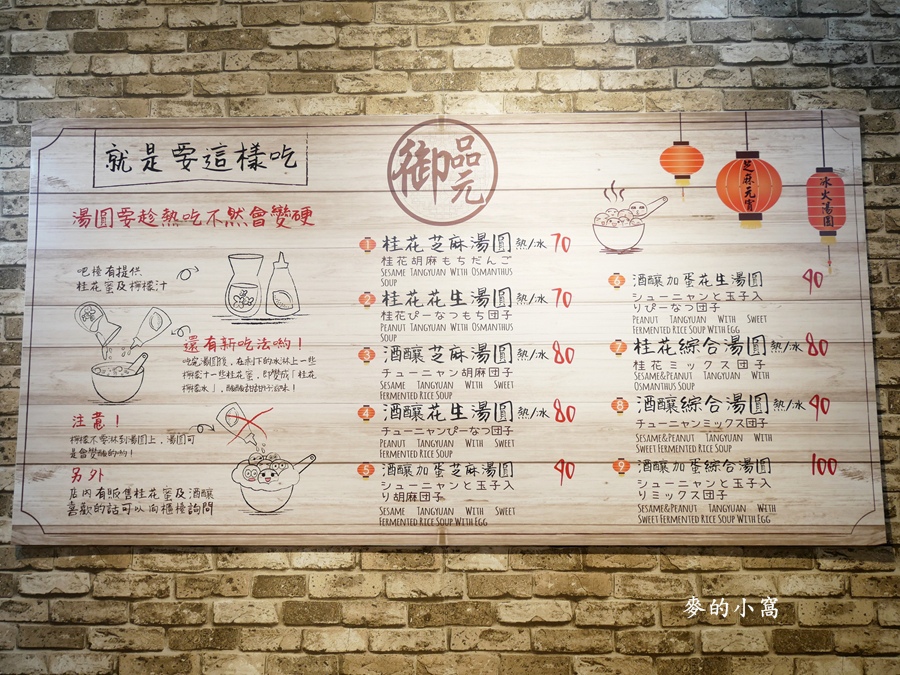 就是要這樣吃
湯圓要趁熱吃不然會變硬
吧檯有提供
桂花蜜及檸檬汁
還有新吃法喲！
吃完湯圓後，在剩下的冰淋上一些
檸檬汁一些桂花蜜，即變成「桂花
檸檬冰」，酸酸甜甜好滋味！
注意！
檸檬不要淋到湯圓上，湯圓可
是會變酸的喲！
另外
店內有販售桂花蜜及酒釀
喜歡的話可以向櫃檯詢問
御品元
芝麻元宵
冰火湯圓
1 桂花芝麻湯圓 熱/冰 70
桂花胡麻もちだんご
Sesame Tangyuan With Osmanthus
Soup
2 桂花花生湯圓 熱/冰 70
桂花ぴーなつもち団子
Peanut Tangyuan With Osmanthus
Soup
3 酒釀芝麻湯圓 熱/冰 80
チューニャン胡麻団子
Sesame Tangyuan With Sweet
Fermented Rice Soup
4 酒釀花生湯圓 熱/冰 80
チューニャンぴーなつ団子
Peanut Tangyuan With Sweet
Fermented Rice Soup
5 酒釀加蛋芝麻湯圓 90
シューニャンと玉子入
り胡麻団子
Sesame Tangyuan With Sweet
Fermented Rice Soup With Egg
6 酒釀加蛋花生湯圓 90
シューニャンと玉子入
りぴーなつ団子
Peanut Tangyuan With Sweet
Fermented Rice Soup With Egg
7 桂花綜合湯圓 熱/冰 80
桂花ミックス団子
Sesame&Peanut Tangyuan With
Osmanthus Soup
8 酒釀綜合湯圓 熱/冰 90
チューニャンミックス団子
Sesame&Peanut Tangyuan With
Sweet Fermented Rice Soup
9 酒釀加蛋綜合湯圓 100
シューニャンと玉子入
りミックス団子
Sesame&Peanut Tangyuan With
Sweet Fermented Rice Soup With Egg
麥的小窩